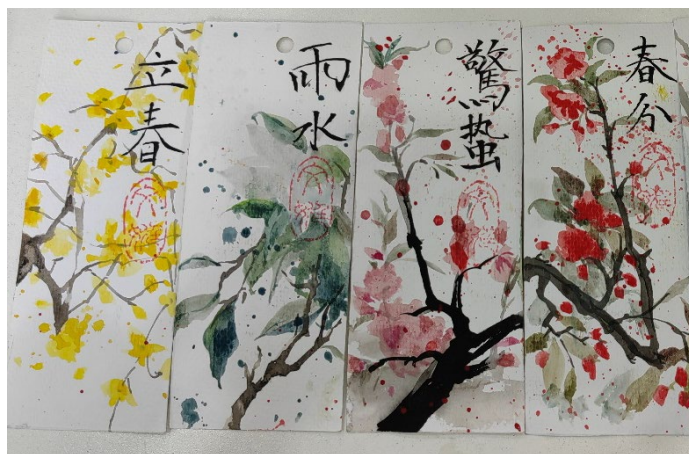 立春
雨水
驚蛰
春分